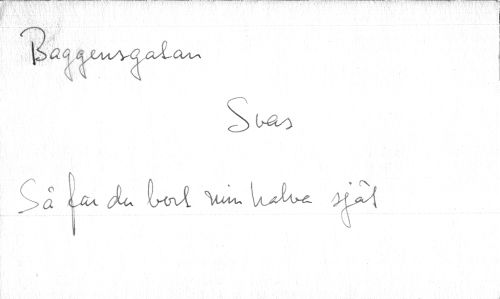 Baggensgatan
Svas
Så far du bort min halva själ